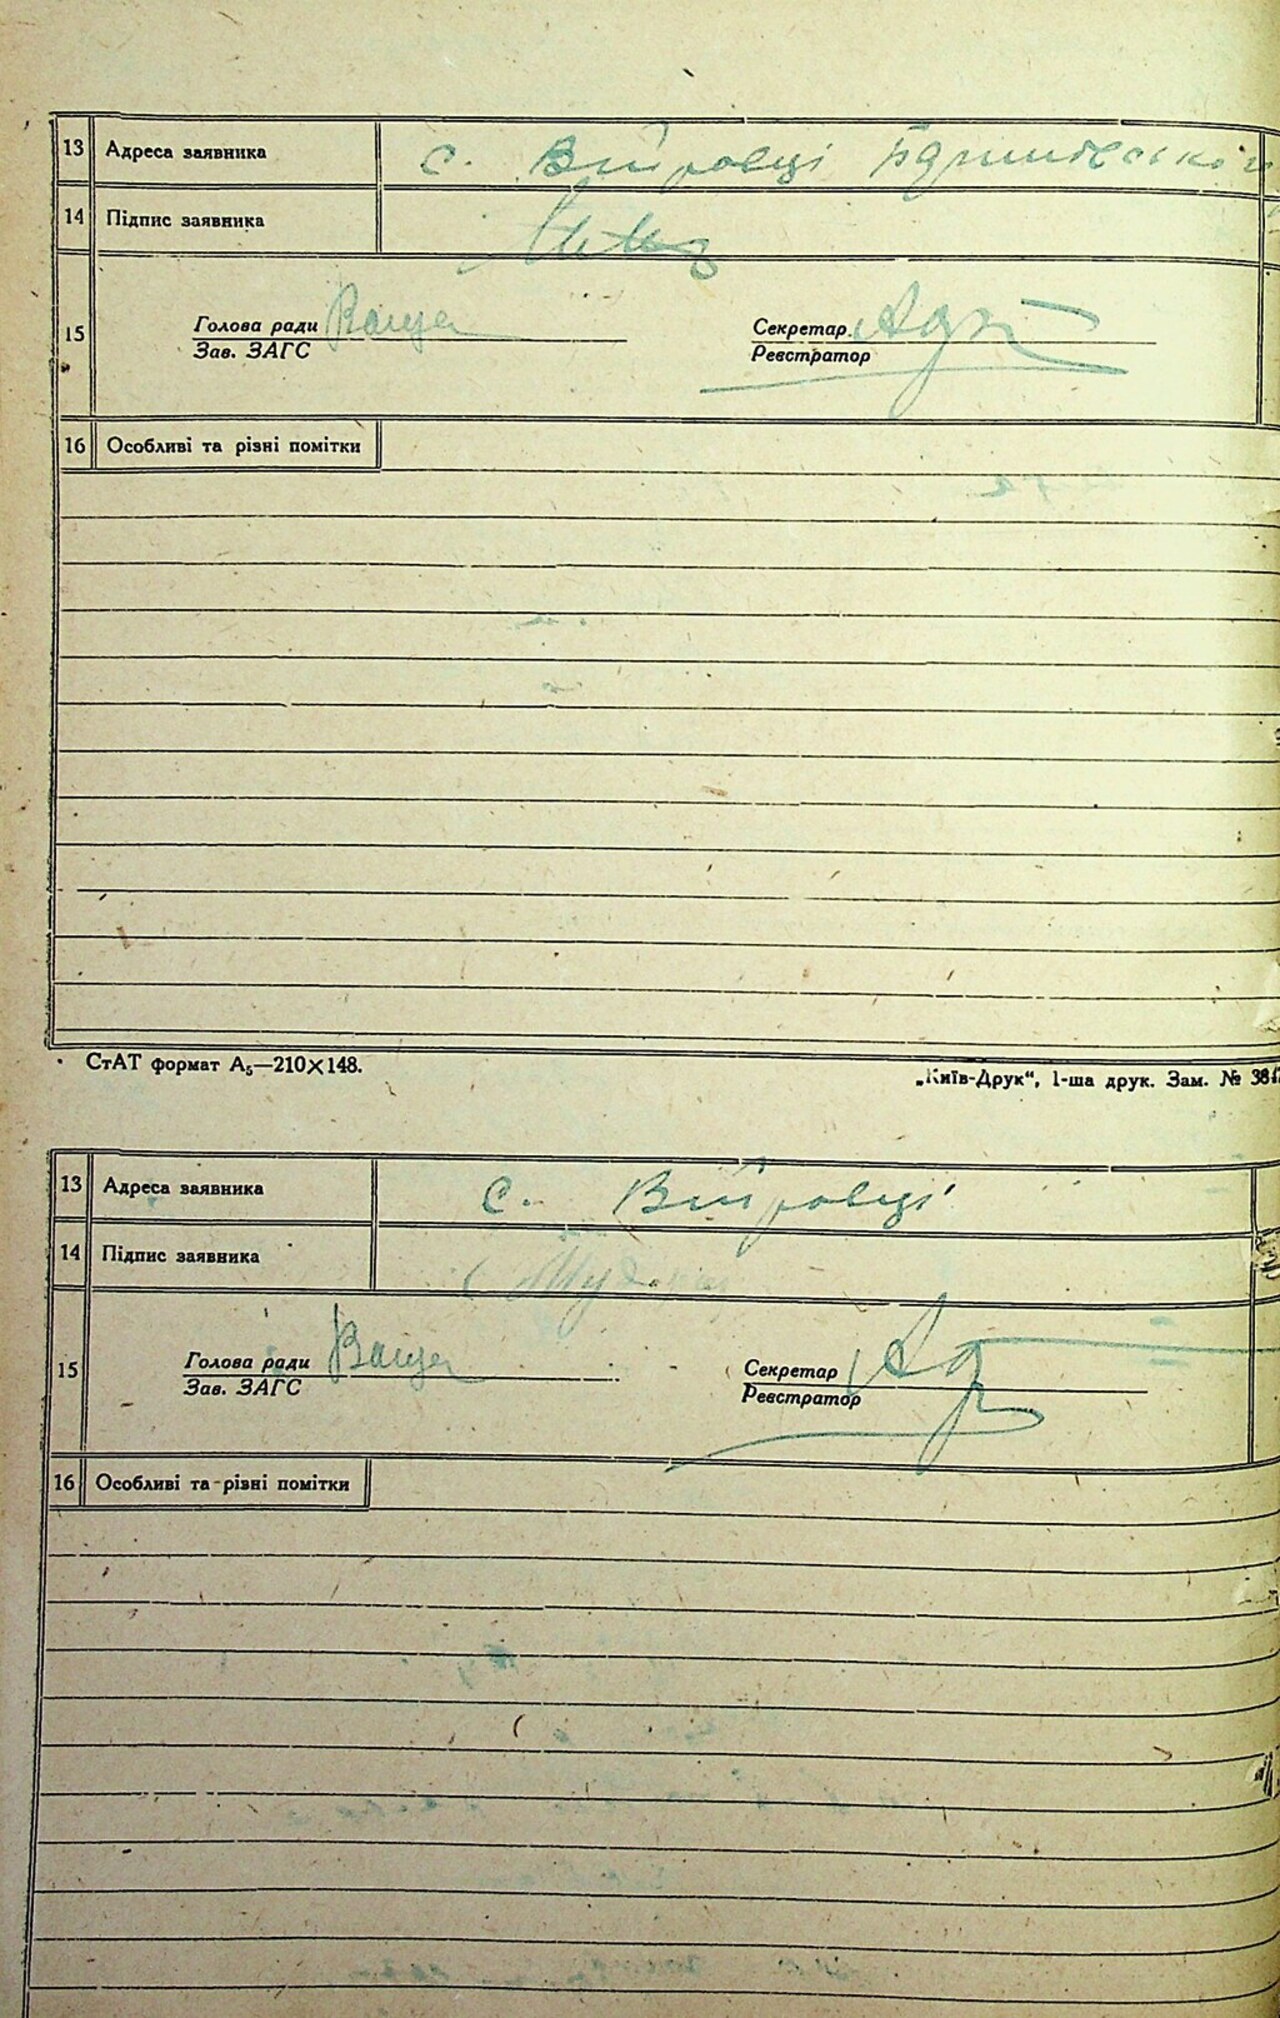 13 Адреса заявника с. Вітровці
14 Підпис заявника
15 Голова ради Ващен Секретар
Зав. ЗАГС Реєстратор
16 Особливі та різні помітки
СтАТ формат А₅—210×148. „Київ-Друк“, 1-ша друк. Зам. №
13 Адреса заявника с. Вітровці
14 Підпис заявника
15 Голова ради Ващен Секретар
Зав. ЗАГС Реєстратор
16 Особливі та різні помітки